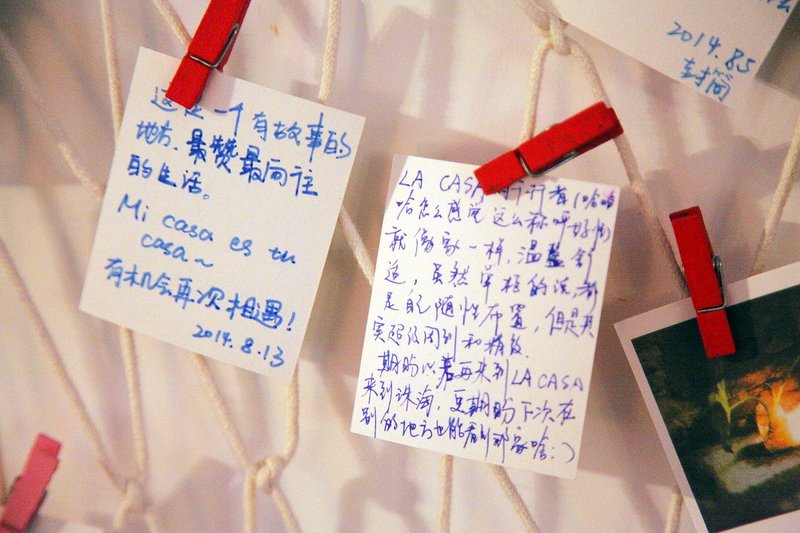 这是一个有故事的
地方.最赞最向往
的生活。
Mi casa es tu
casa~
有机会再次相遇!
2014.8.13
LA CASA 的 有(哈哈
哈怎么感觉这么称呼好像
就像家一样,温馨舒
适,虽然 的说,都
是 随性布置,但是其
实超级周到和精致.
期盼以后再来到LA CASA
来到珠海,更期盼下次在
别的地方也能看到 :)
2014.8.5
封筒